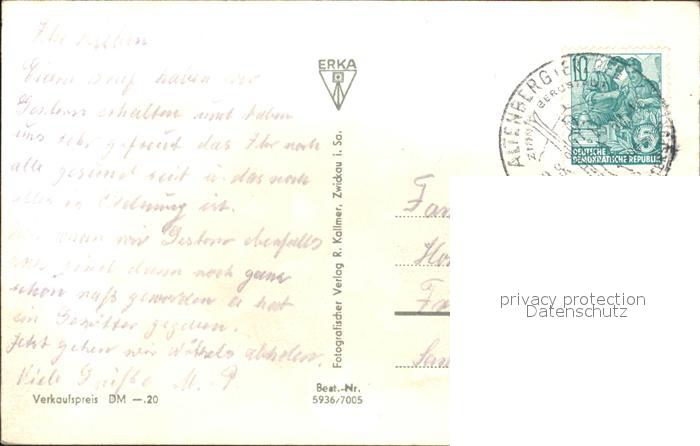 Ihr Lieben
Euern Brief haben wir
Gestern erhalten und haben
uns sehr gefreut das Ihr noch
alle gesund seit u. das noch
alles in Ordnung ist.
wir waren wir Gestern ebenfalls
und sind dann noch ganz
schön naß geworden es hat
ein Gewitter gegeben.
Jetzt gehen wir abholen.
Viele Grüße M. P.
Verkaufspreis DM —.20
ERKA
Fotografischer Verlag R. Kallmer, Zwickau i. Sa.
Best.-Nr.
5936/7005
ALTENBERG (ERZGEB
10
DEUTSCHE
DEMOKRATISCHE REPUBLIK
Fam
Ho
privacy protection
Datenschutz